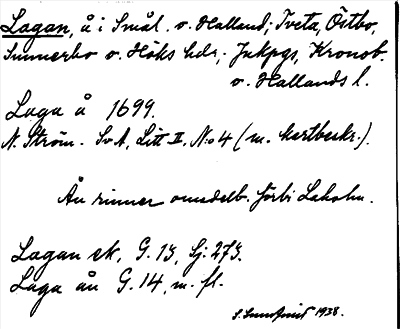 Lagan, å i Smål. o. Halland; Tveta, Östbo,
Sunnerbo o. Höks hdr; Jnkpgs, Kronob.
o. Hallands l.
Laga å 1699.
N. Ström. Sv A, Litt II, N:o 4 (m. kartbeskr.).
Ån rinner omedelb. förbi Laholm.
Lagan ek, G. 13, Sj: 273.
Laga ån G. 14, m. fl.
1938.